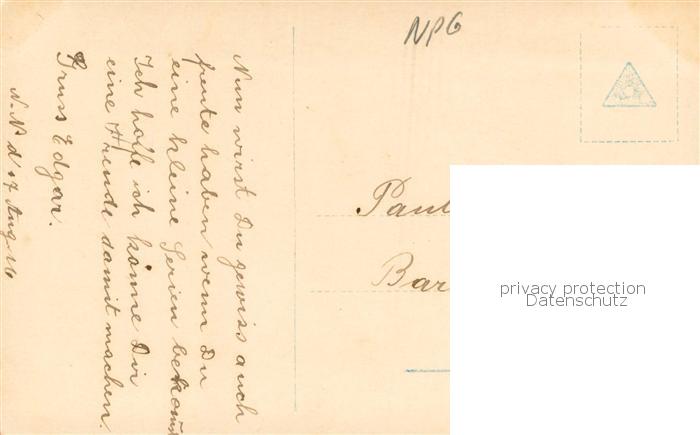 NPG
Nun wirst Du gewiss auch
freute haben wenn Du
eine kleine Serien bekomst
Ich hoffe ich könne Dir
eine Freude damit machen.
Gruss Edgar.
N.N d 17 Aug. 16
Paul
Bar
privacy protection
Datenschutz